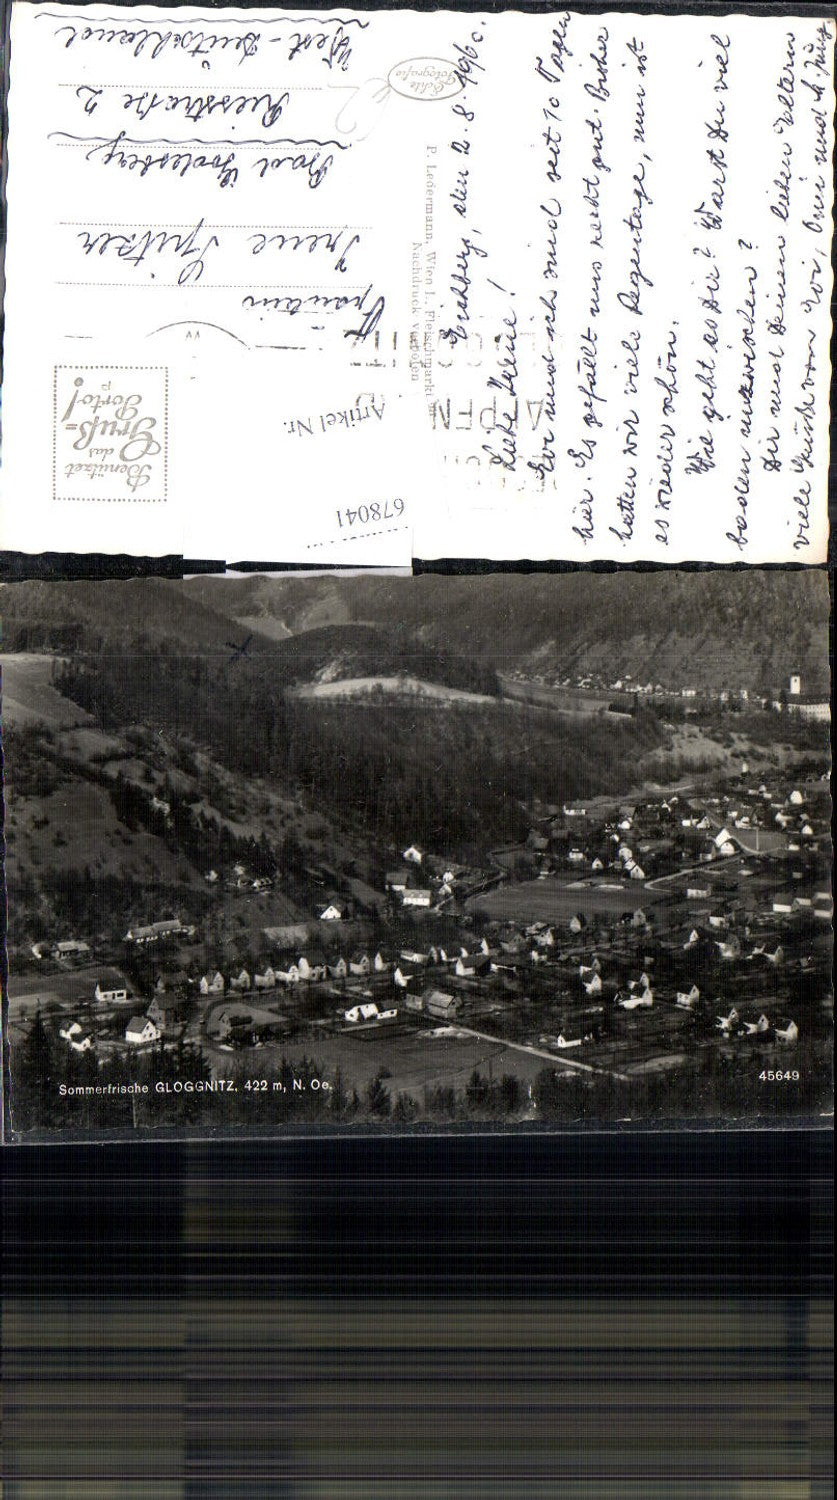 Enzberg, den 2.8.1960.
Liebe Irene!
Evi und ich sind seit 10 Tagen
hier. Es gefällt uns recht gut. Bisher
hatten wir viele Regentage, nun ist
es wieder schön.
Wie geht es Dir? Warst Du viel
baden inzwischen?
Dir und Deinen lieben Eltern
viele Grüße von Evi, Omi und
Echte
Fotografie
P. Ledermann, Wien I., Fleischmarkt
Nachdruck verboten
ALPEN
Benützet
das
Gruß=
Porto!
Fräulein
Irene Spitzer
Bad Godesberg
Riesstraße 2
West-Deutschland
Artikel Nr.
678041
Sommerfrische GLOGGNITZ, 422 m, N. Oe.
45649